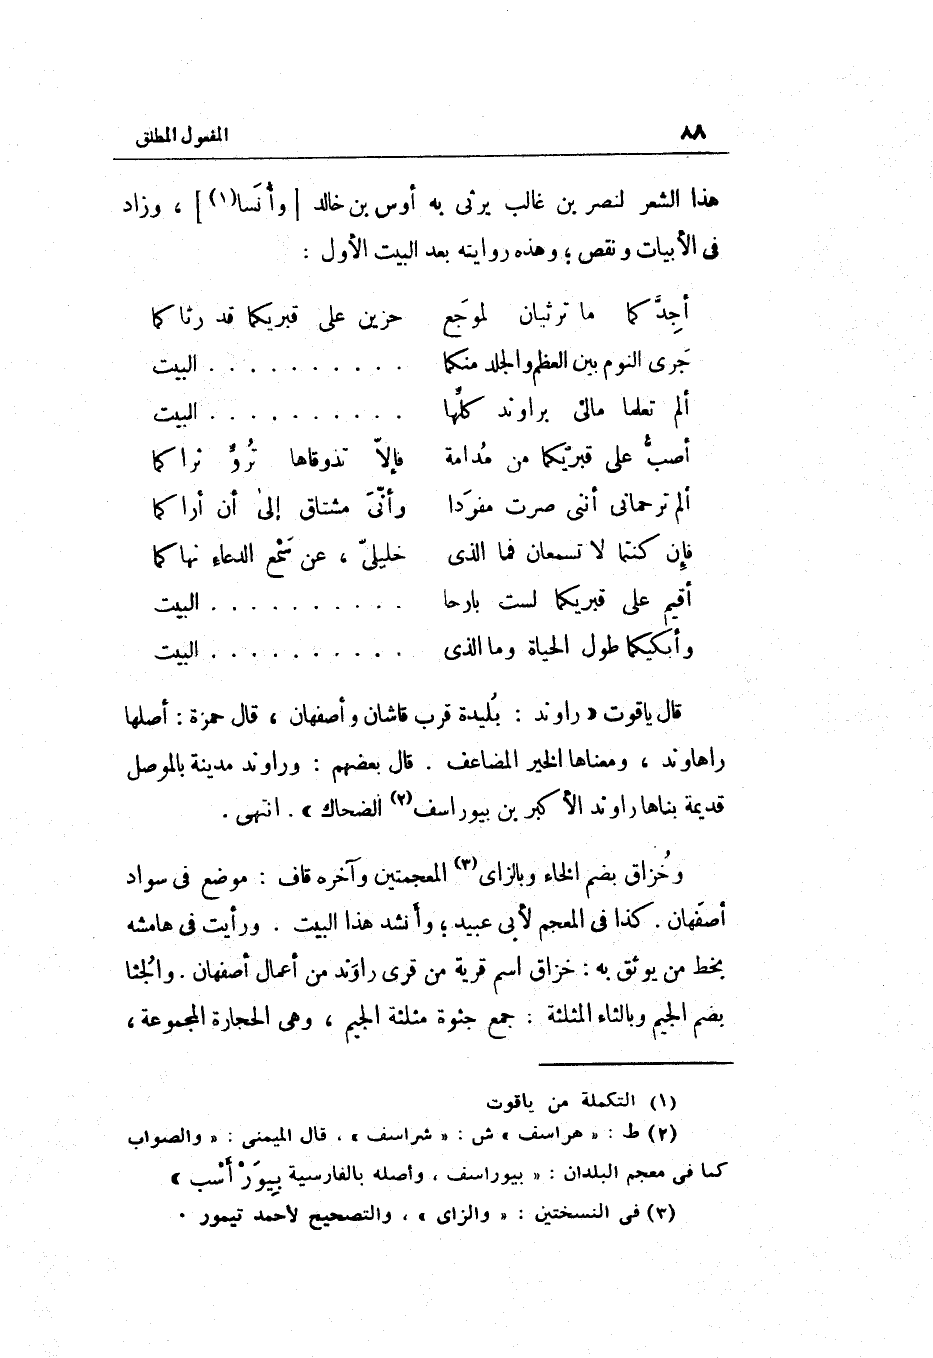 ٨٨ المفعول المطلق
هذا الشعر لنصر بن غالب يرثى به أوس بن خالد [ وأُنَسا(١) ] ، وزاد
فى الأبيات ونقص ؛ وهذه روايته بعد البيت الأول :
أجِدَّ كما ما ترثيان لموجَع حزين على قبريكما قد رثاكما
جَرى النوم بين العظم والجلد منكما . . . . . . . . . . البيت
ألم تعلما مالىْ براوند كلِّها . . . . . . . . . . البيت
أصبُّ على قبرَيكما من مُدامة فإلاّ تذوقاها تُروِّ ثراكما
ألم ترحمانى أننى صرت مفرَدا وأنّىَ مشتاق إلىٰ أن أراكما
فإن كنتما لا تسمعان فما الذى خليلىّ ، عن سَمْع الدعاءِ نهاكما
أقيم على قبريكما لست بارحا . . . . . . . . . . البيت
وأبكيكما طول الحياة وما الذى . . . . . . . . . . البيت
قال ياقوت « راوند : بُليدة قرب قاشان وأصفهان ، قال حمزة : أصلها
راهاوند ، ومعناها الخير المضاعف . قال بعضهم : وراوند مدينة بالموصل
قديمة بناها راوند الأكبر بن بيوراسف(٢) الضحاك » . انتهى .
وخُزاق بضم الخاء وبالزاى(٣) المعجمتين وآخره قاف : موضع فى سواد
أصفهان . كذا فى المعجم لأبى عبيد ؛ وأنشد هذا البيت . ورأيت فى هامشه
بخط من يوثق به : خزاق اسم قرية من قرى راوَند من أعمال أصفهان . والجُثا
بضم الجيم وبالثاء المثلثة : جمع جثوة مثلثة الجيم ، وهى الحجارة المجموعة ،
(١) التكملة من ياقوت
(٢) ط : « هراسف » ش : « شراسف » ، قال الميمنى : « والصواب
كما فى معجم البلدان : « بيوراسف ، وأصله بالفارسية بِيوَرْ أَسْب »
(٣) فى النسختين : « والزاى » ، والتصحيح لأحمد تيمور .